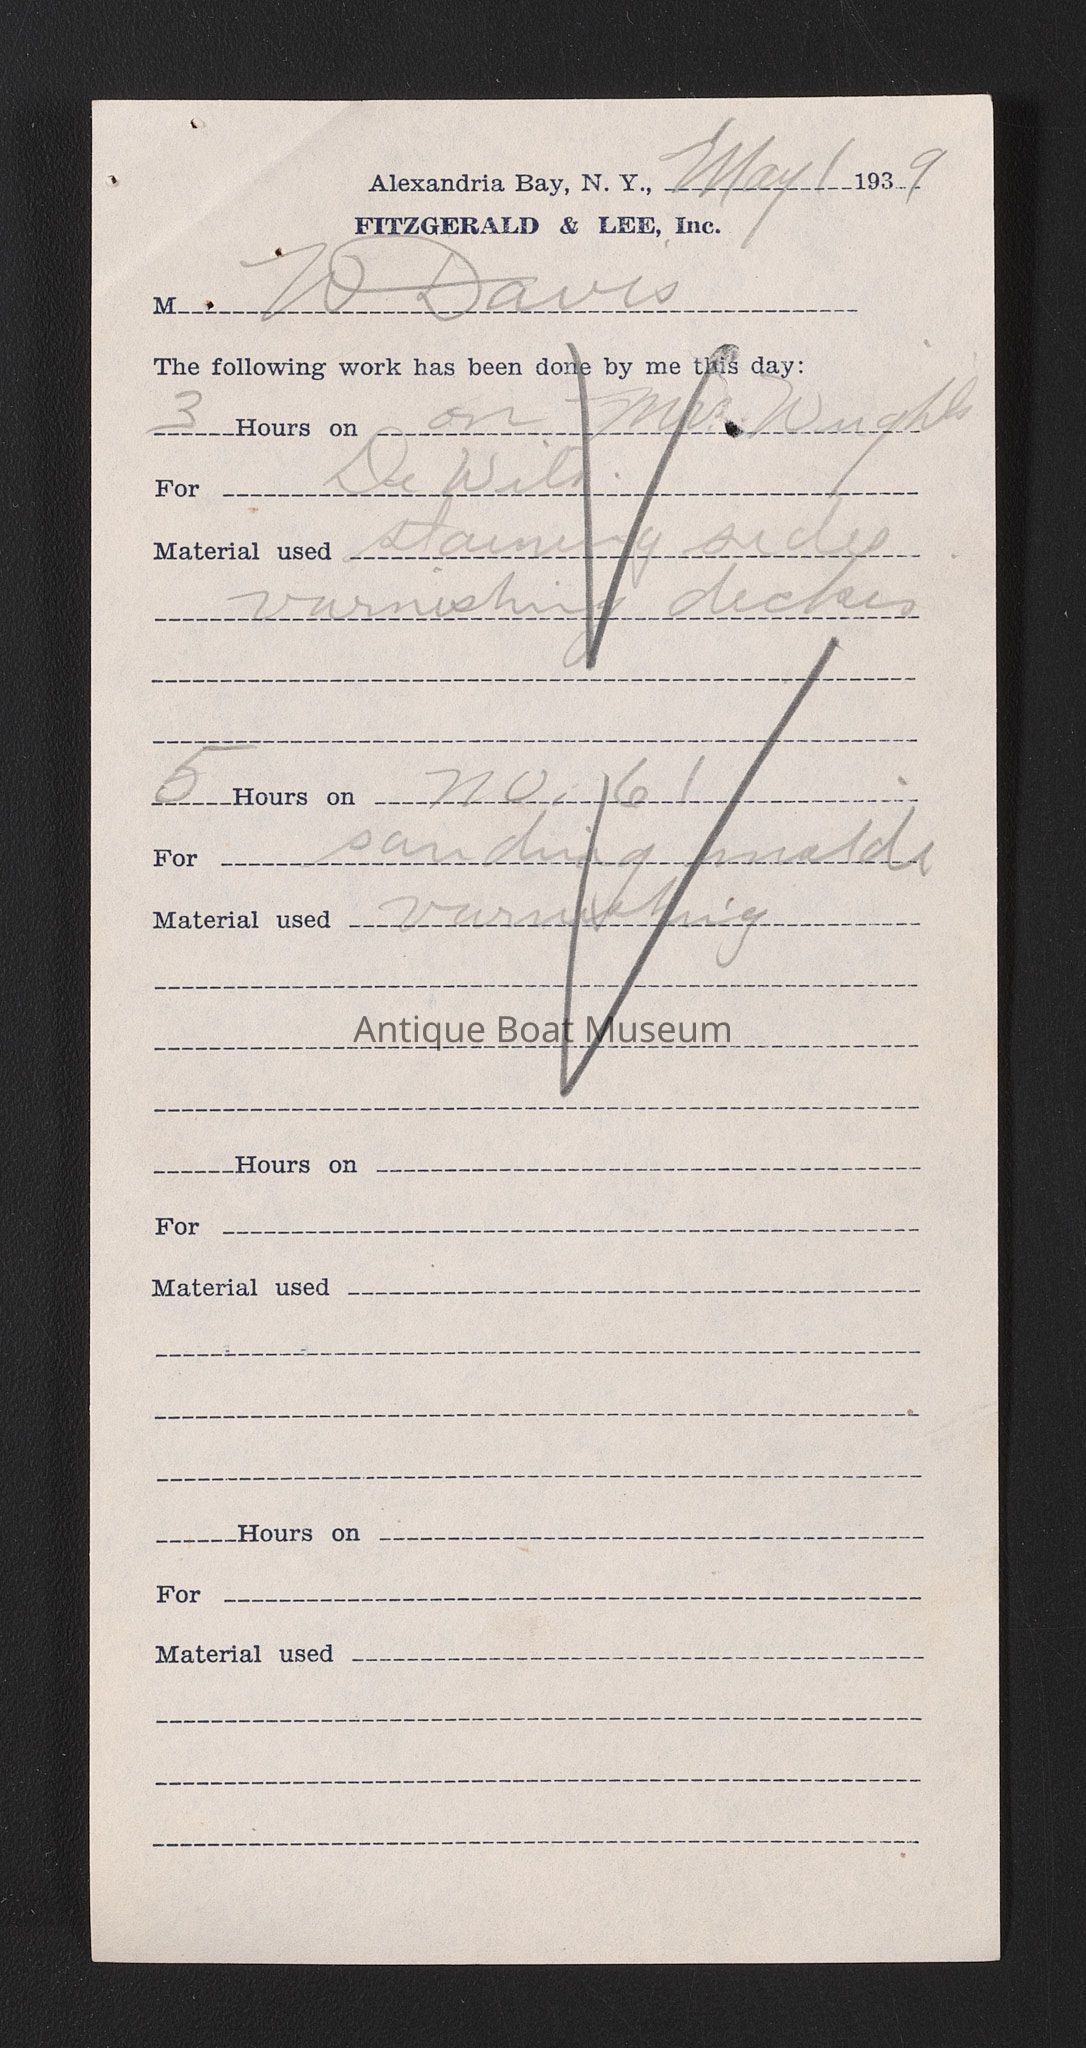 Alexandria Bay, N. Y., May 1 1939
FITZGERALD & LEE, Inc.
M W Davis
The following work has been done by me this day:
3 Hours on on Mrs. Wrights
For De Wit
Material used staining sides
varnishing deckes
5 Hours on no. 61
For sanding molds
Material used varnishing
Antique Boat Museum
Hours on
For
Material used
Hours on
For
Material used